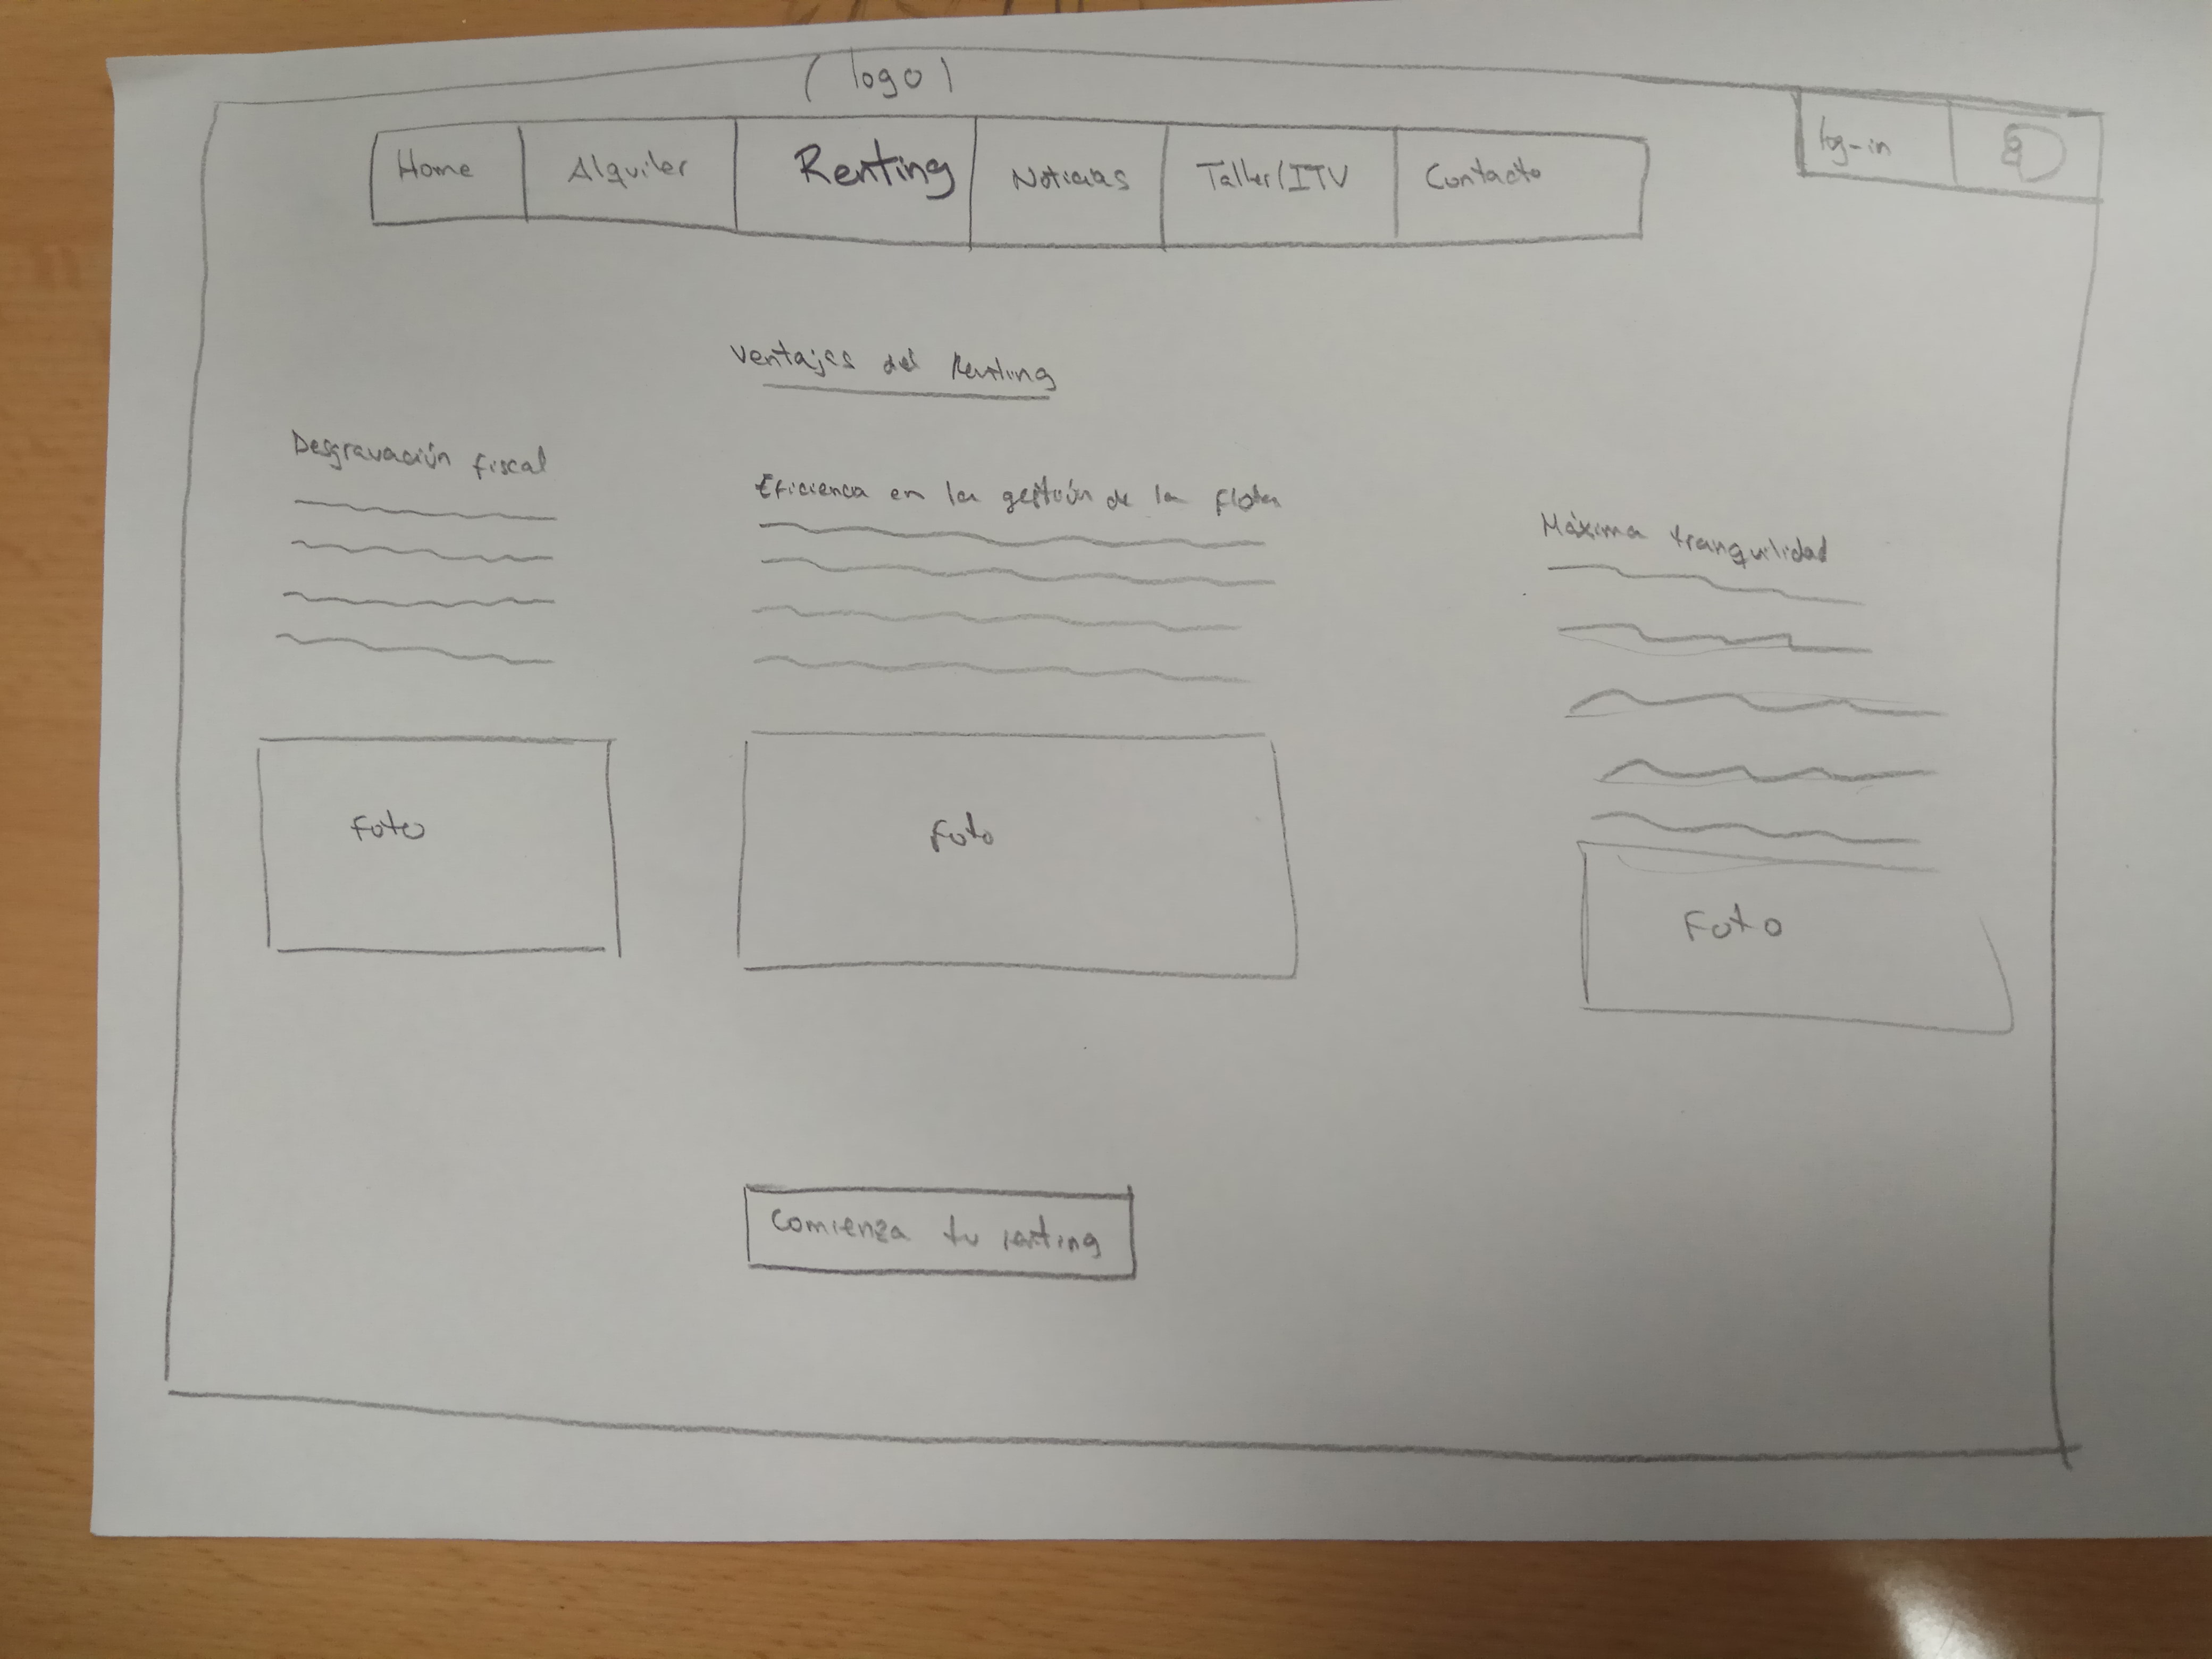 ( logo )
Home Alquiler Renting Noticias Taller/ITV Contacto
log-in
Ventajas del Renting
Desgravación fiscal
Eficienca en la gestión de la flota
Máxima tranquilidad
Foto
Foto
Foto
Comienza tu renting